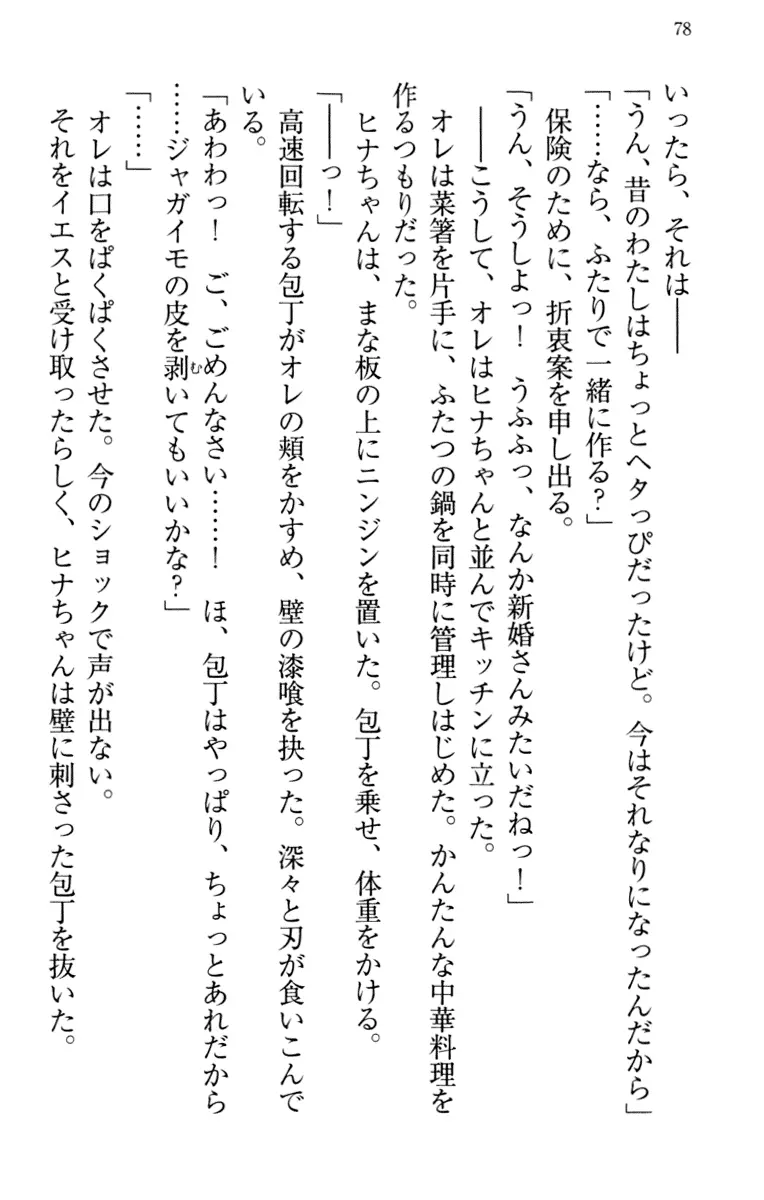 78
いったら、それは――
「うん、昔のわたしはちょっとヘタっぴだったけど。今はそれなりになったんだから」
「……なら、ふたりで一緒に作る?」
保険のために、折衷案を申し出る。
「うん、そうしよっ! うふふっ、なんか新婚さんみたいだねっ!」
――こうして、オレはヒナちゃんと並んでキッチンに立った。
オレは菜箸を片手に、ふたつの鍋を同時に管理しはじめた。かんたんな中華料理を
作るつもりだった。
ヒナちゃんは、まな板の上にニンジンを置いた。包丁を乗せ、体重をかける。
「――っ!」
高速回転する包丁がオレの頬をかすめ、壁の漆喰を抉った。深々と刃が食いこんで
いる。
「あわわっ! ご、ごめんなさい……! ほ、包丁はやっぱり、ちょっとあれだから
……ジャガイモの皮を剥いてもいいかな?」
「……」
オレは口をぱくぱくさせた。今のショックで声が出ない。
それをイエスと受け取ったらしく、ヒナちゃんは壁に刺さった包丁を抜いた。